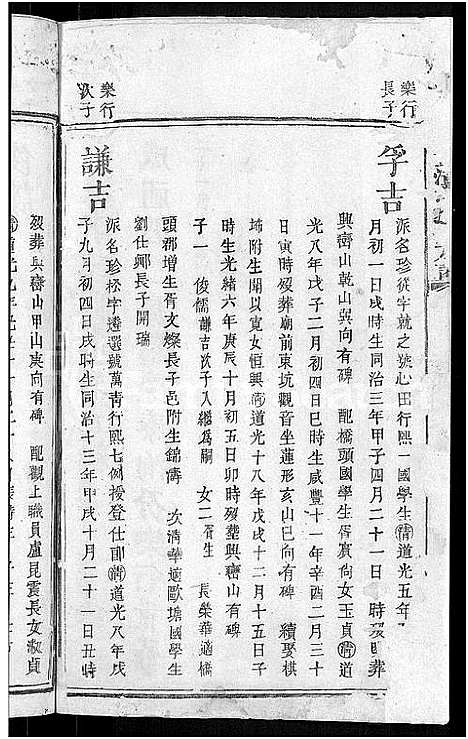 樂行
長子
孚吉
派名珍從字就之號心田行熙一國學生清道光五年
月初一日戌時生同治三年甲子四月二十一日 時歿葬
興巒山乾山巽向有碑 配橋頭國學生胥賓尙女玉貞清道
光八年戊子二月初四日巳時生咸豐十一年辛酉二月三十
日寅時歿葬廟前東坑觀音坐蓮形亥山巳向有碑 續娶棋
埘附生開以寬女恒興清道光十八年戊戌十二月十五日子
時生光緒六年庚辰十月初五日卯時歿葬興巒山有碑
子一 俊儒謙吉次子入繼爲嗣 女二胥生 長榮華適橋
頭郡增生胥文燦長子邑附生錦儔 次淸華適歐塘國學生
劉仕鄉長子開瑞
樂行
次子
謙吉
派名珍拯字遴選號萬靑行熙七例授登仕郎清道光八年戊
子九月初四日戌時生同治十三年甲戌十月二十一日丑時
歿葬興巒山甲山庚向有碑 配觀上職員盧昆雲長女淑貞